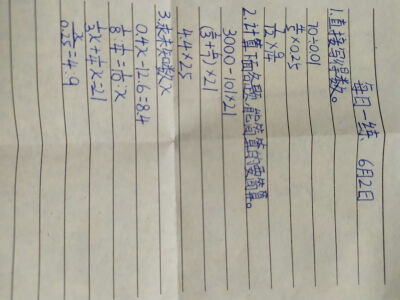 每日一练 6月2日
1.直接写得数。
70÷0.01
4/5×0.25
7/12×9/14
2.计算下面各题,能简算的要简算。
3000-101×21
(1/3+1/7)×21
4.4×25
3.求未知数x
0.4x-12.6=8.4
1/8×1/4=1/16:x
1/3x+1/4x=21
x/0.25=4:9